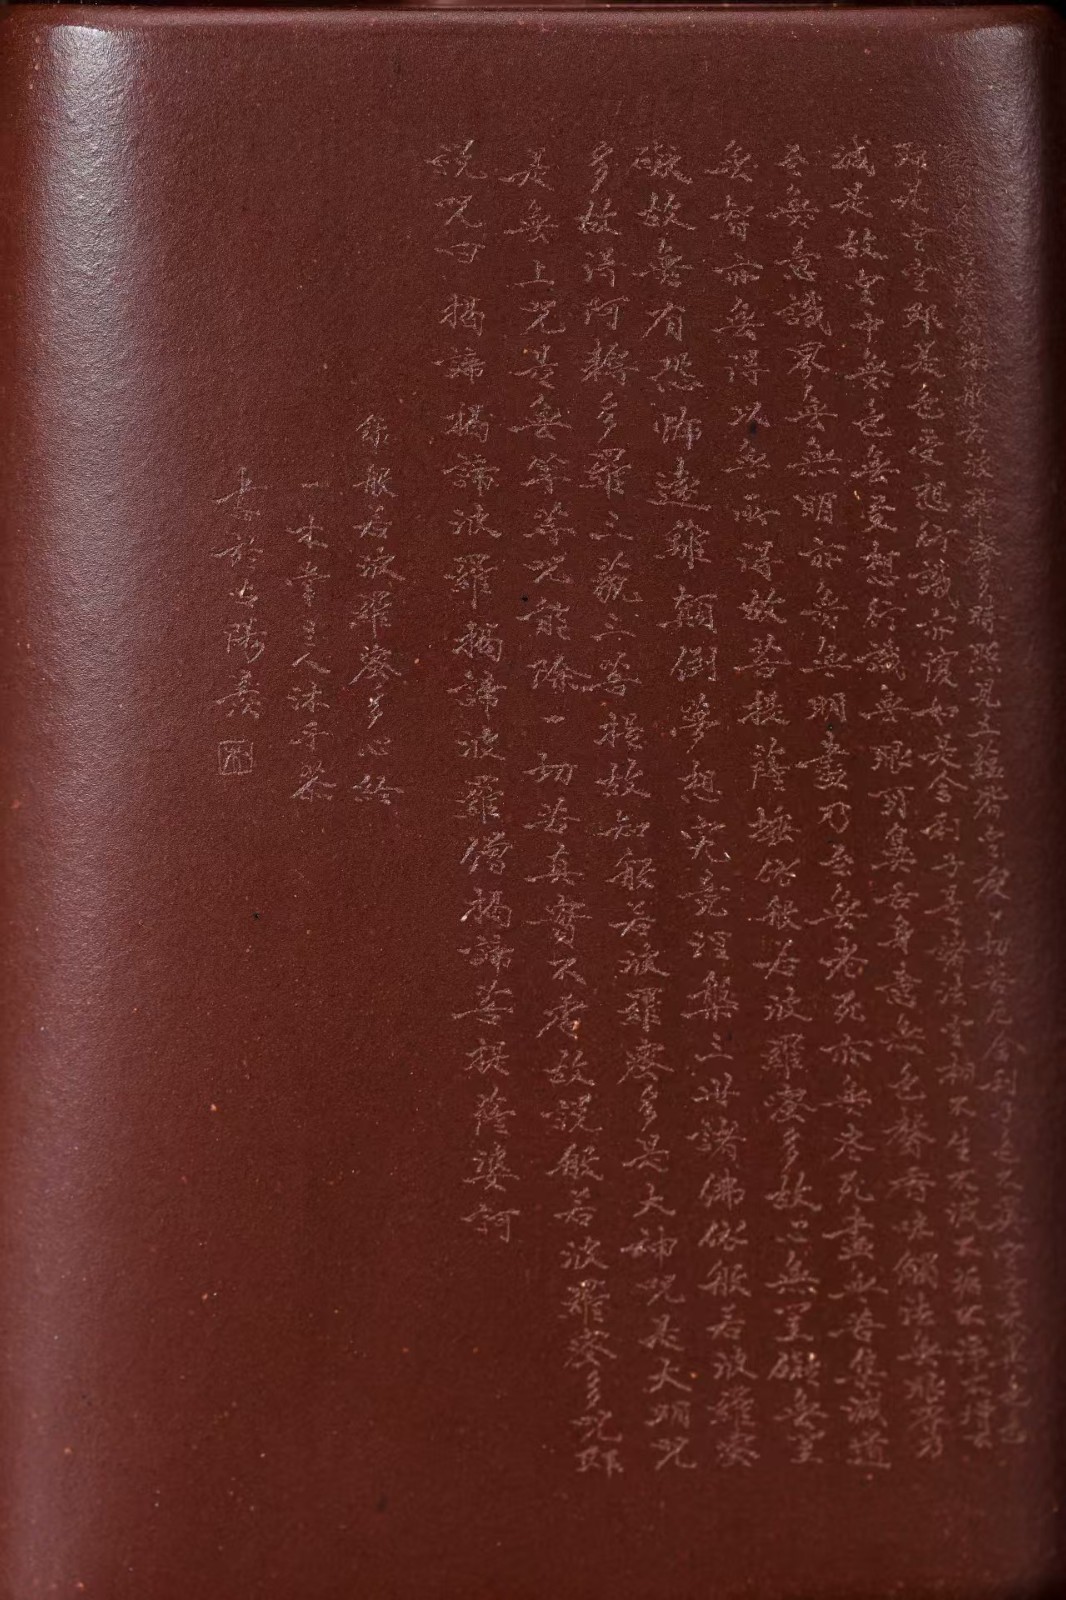 行深般若波羅蜜多時照見五蘊皆空度一切苦厄舍利子色不異空空不異色色
即是空空即是色受想行識亦復如是舍利子是諸法空相不生不滅不垢不淨不增不
減是故空中無色無受想行識無眼耳鼻舌身意無色聲香味觸法無眼界乃
至無意識界無無明亦無無明盡乃至無老死亦無老死盡無苦集滅道
無智亦無得以無所得故菩提薩埵依般若波羅蜜多故心無罣礙無罣
礙故無有恐怖遠離顛倒夢想究竟涅槃三世諸佛依般若波羅蜜
多故得阿耨多羅三藐三菩提故知般若波羅蜜多是大神咒是大明咒
是無上咒是無等等咒能除一切苦真實不虛故說般若波羅蜜多咒即
說咒曰揭諦揭諦波羅揭諦波羅僧揭諦菩提薩婆訶
錄般若波羅蜜多心經
一木堂主人沐手恭
書於古陽羨